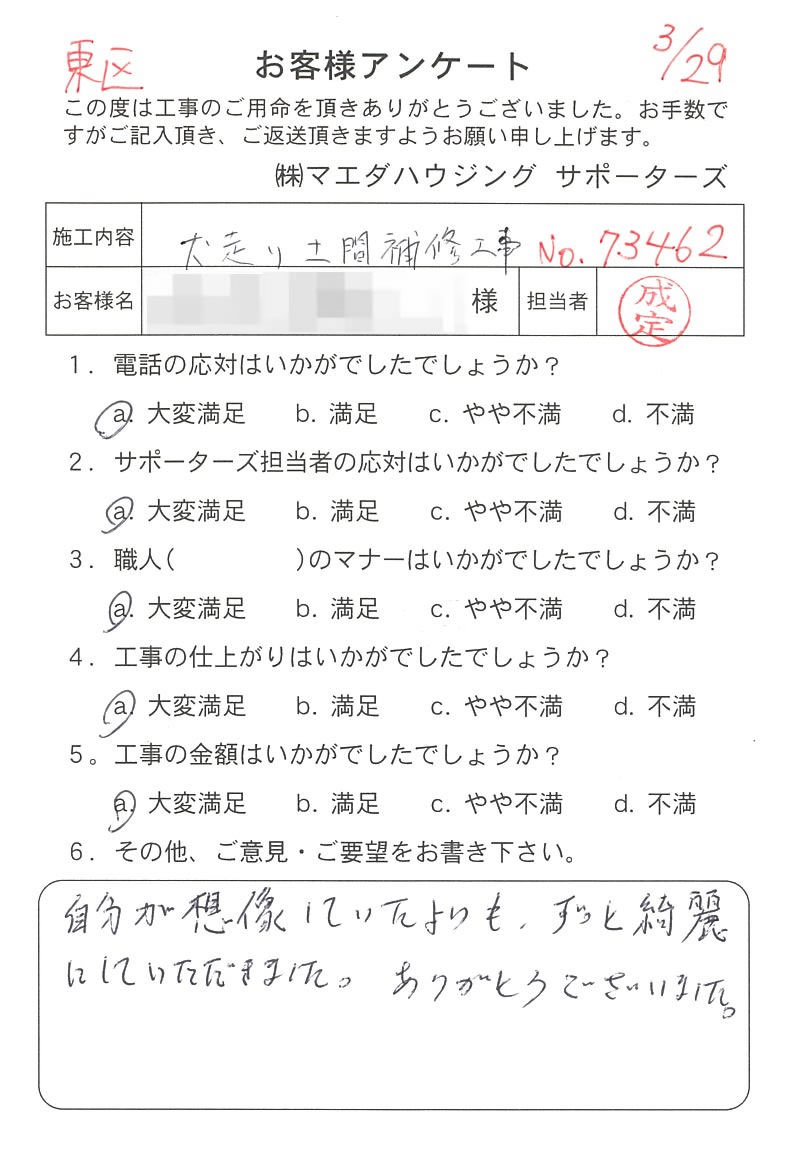 東区 お客様アンケート 3/29
この度は工事のご用命を頂きありがとうございました。お手数で
すがご記入頂き、ご返送頂きますようお願い申し上げます。
㈱マエダハウジング サポーターズ
施工内容 犬走り土間補修工事 No.73462
お客様名 様 担当者 成定
1. 電話の応対はいかがでしたでしょうか？
a. 大変満足 b. 満足 c. やや不満 d. 不満
2. サポーターズ担当者の応対はいかがでしたでしょうか？
a. 大変満足 b. 満足 c. やや不満 d. 不満
3. 職人( )のマナーはいかがでしたでしょうか？
a. 大変満足 b. 満足 c. やや不満 d. 不満
4. 工事の仕上がりはいかがでしたでしょうか？
a. 大変満足 b. 満足 c. やや不満 d. 不満
5。工事の金額はいかがでしたでしょうか？
a. 大変満足 b. 満足 c. やや不満 d. 不満
6. その他、ご意見・ご要望をお書き下さい。
自分が想像していたよりも、ずっと綺麗
にしていただきました。ありがとうございました。